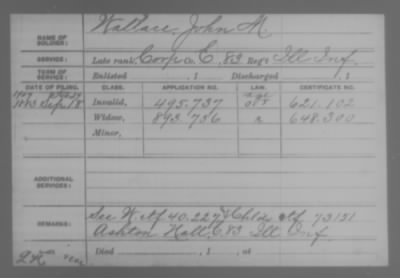 NAME OF SOLDIER: Wallace, John M.
SERVICE: Late rank, Corp Co. E, 83 Reg't Ill Inf.
TERM OF SERVICE: Enlisted , 1 Discharged , 1
DATE OF FILING. CLASS. APPLICATION NO. LAW. CERTIFICATE NO.
1883 Sep. 18 Invalid, 495.737 621.102
Widow, 893.756 648.300
Minor,
ADDITIONAL SERVICES:
REMARKS: See W ctf 40.227 & Child ctf 73151
Ashton Hall, C 83 Ill Inf
Died , 1 , at